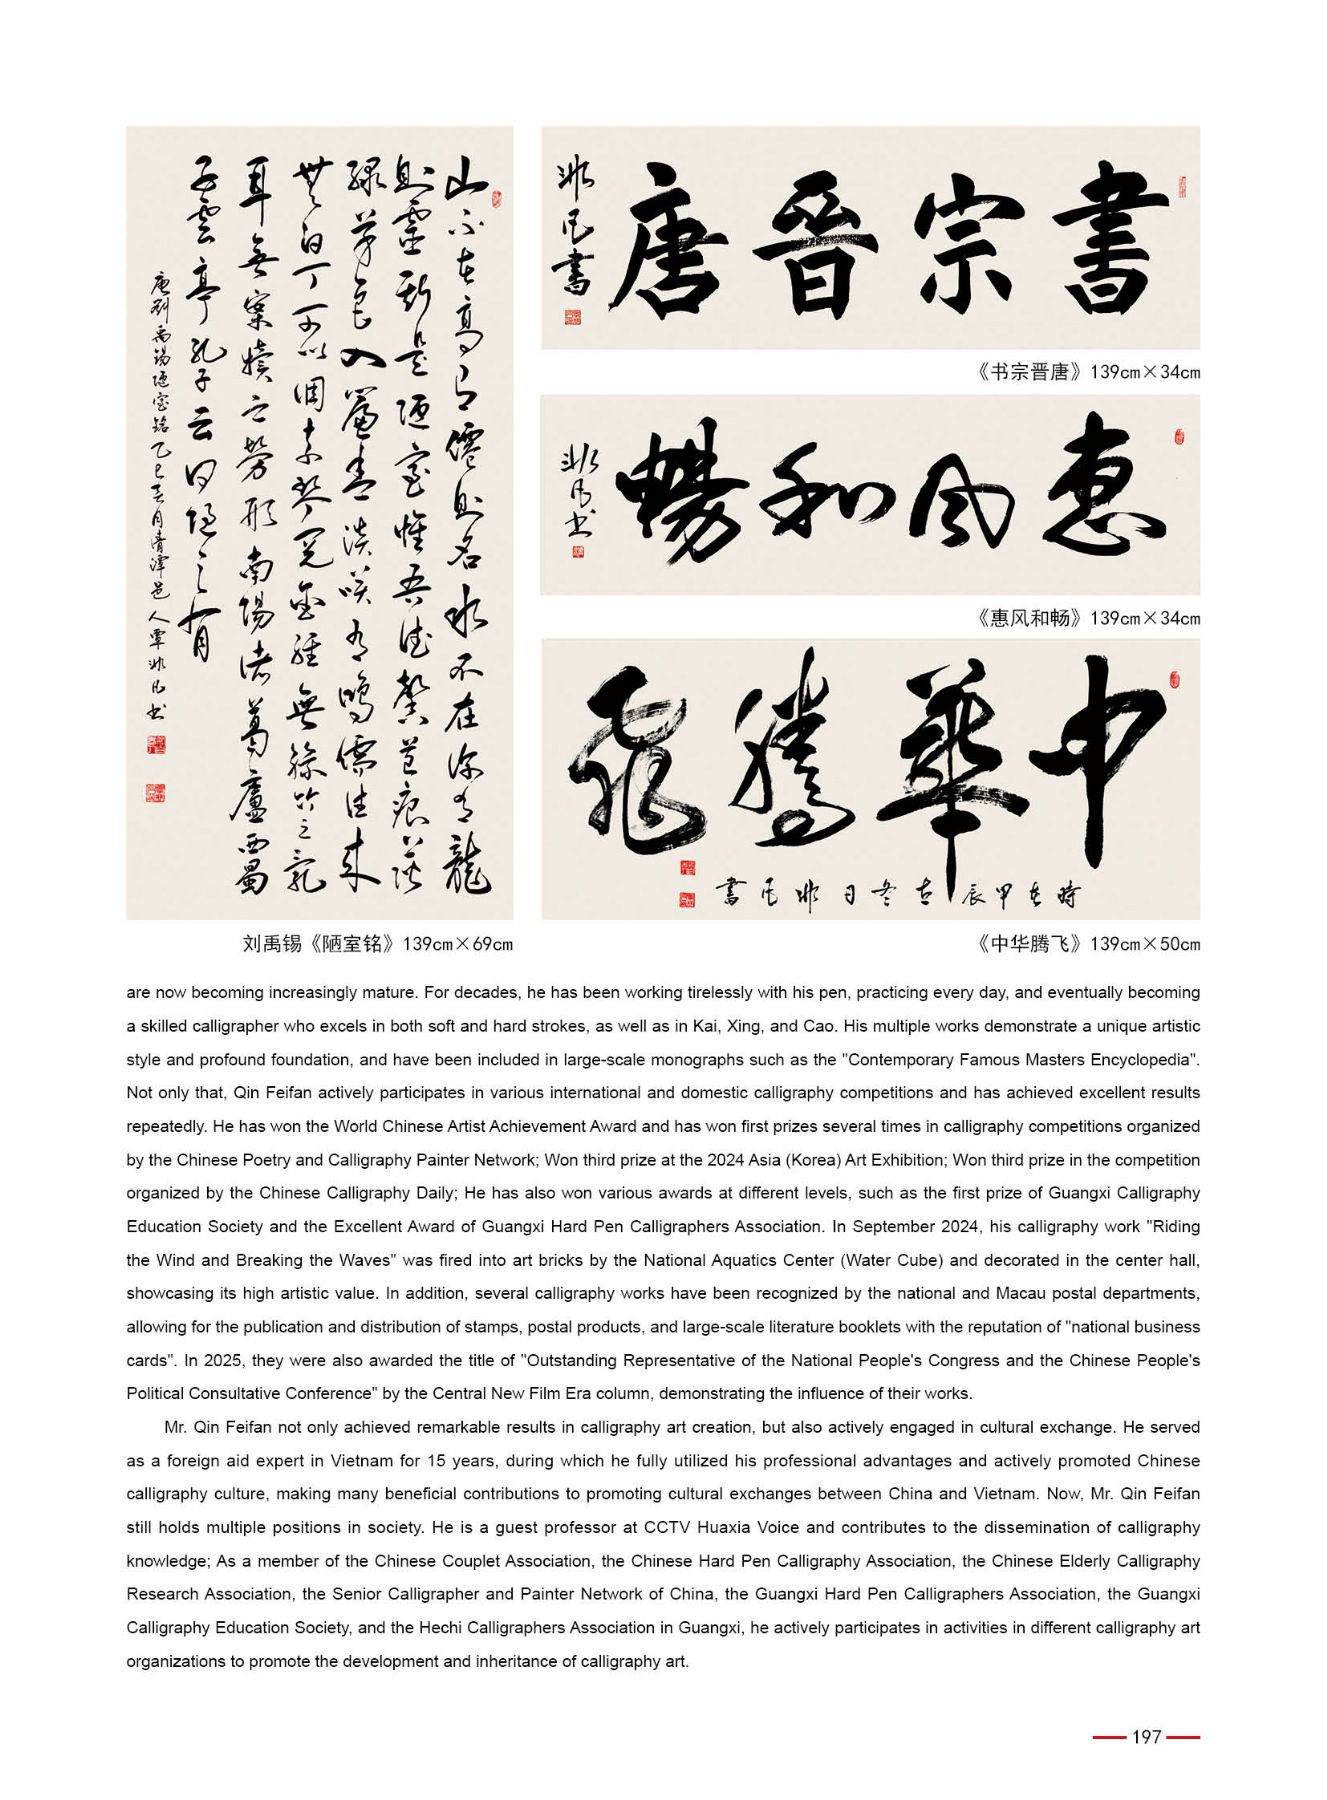 山不在高有僊則名水不在深有龍
則靈斯是陋室惟吾德馨苔痕上階
綠草色入簾青談咲有鴻儒往來
無白丁可以調素琴閱金經無絲竹之亂
耳無案牘之勞形南陽諸葛廬西蜀
子雲亭孔子云何陋之有
唐劉禹錫陋室銘乙巳春月清潭邑人覃非凡书
刘禹锡《陋室铭》139cm×69cm
書宗晉唐
非凡書
《书宗晋唐》139cm×34cm
惠風和暢
非凡书
《惠风和畅》139cm×34cm
中華騰飛
時在甲辰立冬日非凡書
《中华腾飞》139cm×50cm
are now becoming increasingly mature. For decades, he has been working tirelessly with his pen, practicing every day, and eventually becoming
a skilled calligrapher who excels in both soft and hard strokes, as well as in Kai, Xing, and Cao. His multiple works demonstrate a unique artistic
style and profound foundation, and have been included in large-scale monographs such as the "Contemporary Famous Masters Encyclopedia".
Not only that, Qin Feifan actively participates in various international and domestic calligraphy competitions and has achieved excellent results
repeatedly. He has won the World Chinese Artist Achievement Award and has won first prizes several times in calligraphy competitions organized
by the Chinese Poetry and Calligraphy Painter Network; Won third prize at the 2024 Asia (Korea) Art Exhibition; Won third prize in the competition
organized by the Chinese Calligraphy Daily; He has also won various awards at different levels, such as the first prize of Guangxi Calligraphy
Education Society and the Excellent Award of Guangxi Hard Pen Calligraphers Association. In September 2024, his calligraphy work "Riding
the Wind and Breaking the Waves" was fired into art bricks by the National Aquatics Center (Water Cube) and decorated in the center hall,
showcasing its high artistic value. In addition, several calligraphy works have been recognized by the national and Macau postal departments,
allowing for the publication and distribution of stamps, postal products, and large-scale literature booklets with the reputation of "national business
cards". In 2025, they were also awarded the title of "Outstanding Representative of the National People's Congress and the Chinese People's
Political Consultative Conference" by the Central New Film Era column, demonstrating the influence of their works.
Mr. Qin Feifan not only achieved remarkable results in calligraphy art creation, but also actively engaged in cultural exchange. He served
as a foreign aid expert in Vietnam for 15 years, during which he fully utilized his professional advantages and actively promoted Chinese
calligraphy culture, making many beneficial contributions to promoting cultural exchanges between China and Vietnam. Now, Mr. Qin Feifan
still holds multiple positions in society. He is a guest professor at CCTV Huaxia Voice and contributes to the dissemination of calligraphy
knowledge; As a member of the Chinese Couplet Association, the Chinese Hard Pen Calligraphy Association, the Chinese Elderly Calligraphy
Research Association, the Senior Calligrapher and Painter Network of China, the Guangxi Hard Pen Calligraphers Association, the Guangxi
Calligraphy Education Society, and the Hechi Calligraphers Association in Guangxi, he actively participates in activities in different calligraphy art
organizations to promote the development and inheritance of calligraphy art.
197